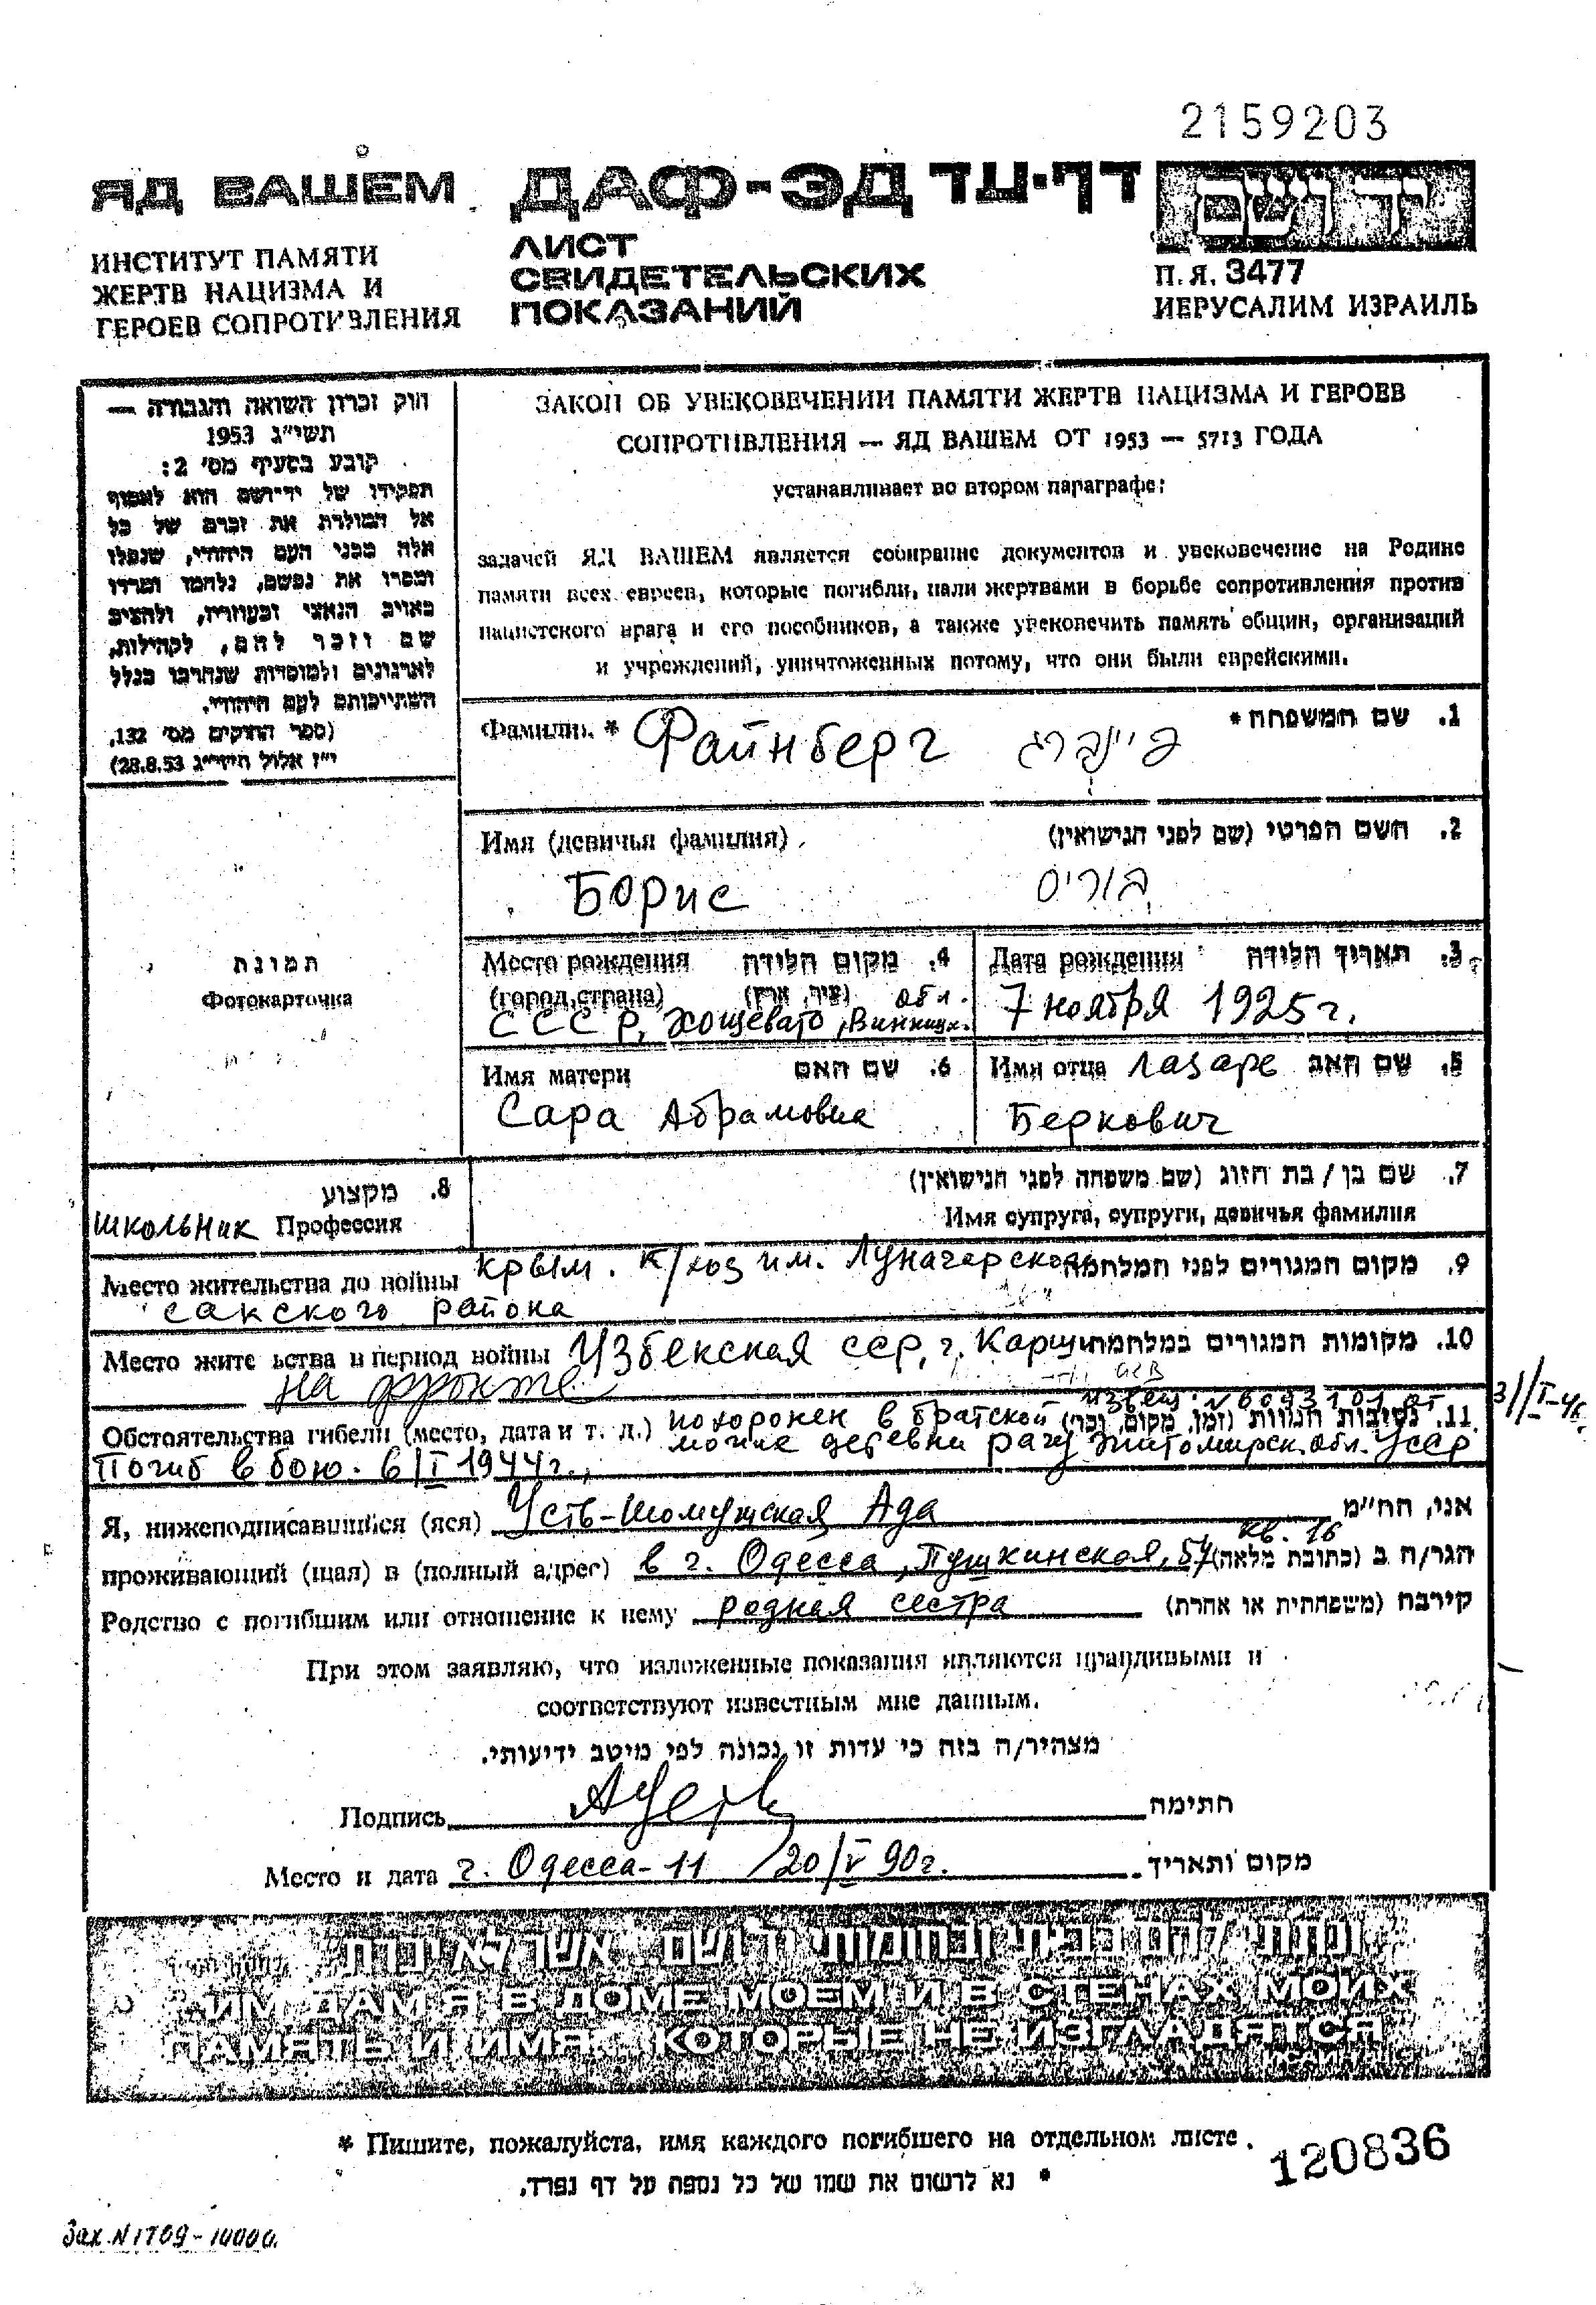 2159203
ЯД ВАШЕМ ДАФ-ЭД דף-עד יד ושם
ИНСТИТУТ ПАМЯТИ
ЖЕРТВ НАЦИЗМА И
ГЕРОЕВ СОПРОТИВЛЕНИЯ
ЛИСТ
СВИДЕТЕЛЬСКИХ
ПОКАЗАНИЙ
П.Я. 3477
ИЕРУСАЛИМ ИЗРАИЛЬ
חוק זכרון השואה והגבורה —
תשי״ג 1953
קובע בסעיף מס׳ 2:
תפקידו של יד־ושם הוא לאסוף
אל המולדת את זכרם של כל
אלה מבני העם היהודי, שנפלו
ומסרו את נפשם, נלחמו ומרדו
באויב הנאצי ובעוזריו, ולהציב
שם וזכר להם, לקהילות,
לארגונים ולמוסדות שנחרבו בגלל
השתייכותם לעם היהודי.
(ספר החוקים מס׳ 132,
י״ז אלול תשי״ג 28.8.53)
ЗАКОН ОБ УВЕКОВЕЧЕНИИ ПАМЯТИ ЖЕРТВ НАЦИЗМА И ГЕРОЕВ
СОПРОТИВЛЕНИЯ — ЯД ВАШЕМ ОТ 1953 — 5713 ГОДА
устанавливает во втором параграфе:
задачей ЯД ВАШЕМ является собирание документов и увековечение на Родине
памяти всех евреев, которые погибли, пали жертвами в борьбе сопротивления против
нацистского врага и его пособников, а также увековечить память общин, организаций
и учреждений, уничтоженных потому, что они были еврейскими.
Фамилия * Файнберг פיינברג 1. שם המשפחה *
Имя (девичья фамилия) 2. השם הפרטי (שם לפני הנישואין)
Борис בוריס
תמונת
Фотокарточка
Место рождения 4. מקום הלידה
(город, страна) (עיר, ארץ) обл.
СССР, Хощевато, Винницк.
Дата рождения 3. תאריך הלידה
7 ноября 1925 г.
Имя матери 6. שם האם
Сара Абрамовна
Имя отца Лазарь 5. שם האב
Беркович
8. מקצוע
школьник Профессия
7. שם בן / בת הזוג (שם משפחה לפני הנישואין)
Имя супруга, супруги, девичья фамилия
Место жительства до войны Крым. к/хоз им. Луначарского 9. מקום המגורים לפני המלחמה
Сакского района
Место жительства в период войны Узбекская ССР, г. Карши 10. מקומות המגורים במלחמה
на фронте
извещ. N 6093101 от 3/I-46
Обстоятельства гибели (место, дата и т. д.) похоронен в братской 11. נסיבות המוות (זמן, מקום, וכו׳)
могиле деревни Рачу Житомирск. обл. УССР
Погиб в бою. 6/I 1944 г.,
Я, нижеподписавшийся (яся) Усть-Шомушская Ада אני, הח״מ
проживающий (щая) в (полный адрес) в г. Одесса, Пушкинская, 57 кв. 16 הגר/ה ב (כתובת מלאה)
Родство с погибшим или отношение к нему родная сестра קירבה (משפחתית או אחרת)
При этом заявляю, что изложенные показания являются правдивыми и
соответствуют известным мне данным.
מצהיר/ה בזה כי עדות זו נכונה לפי מיטב ידיעותי.
Подпись חתימה
Место и дата г. Одесса-11 /20/V 90 г. מקום ותאריך
ונתתי להם בביתי ובחומותי יד ושם... אשר לא יכרת
...ИМ ДАМ Я В ДОМЕ МОЕМ И В СТЕНАХ МОИХ
ПАМЯТЬ И ИМЯ... КОТОРЫЕ НЕ ИЗГЛАДЯТСЯ
* Пишите, пожалуйста, имя каждого погибшего на отдельном листе.
* נא לרשום את שמו של כל נספה על דף נפרד.
120836
Зак. N 1709 - 10000.